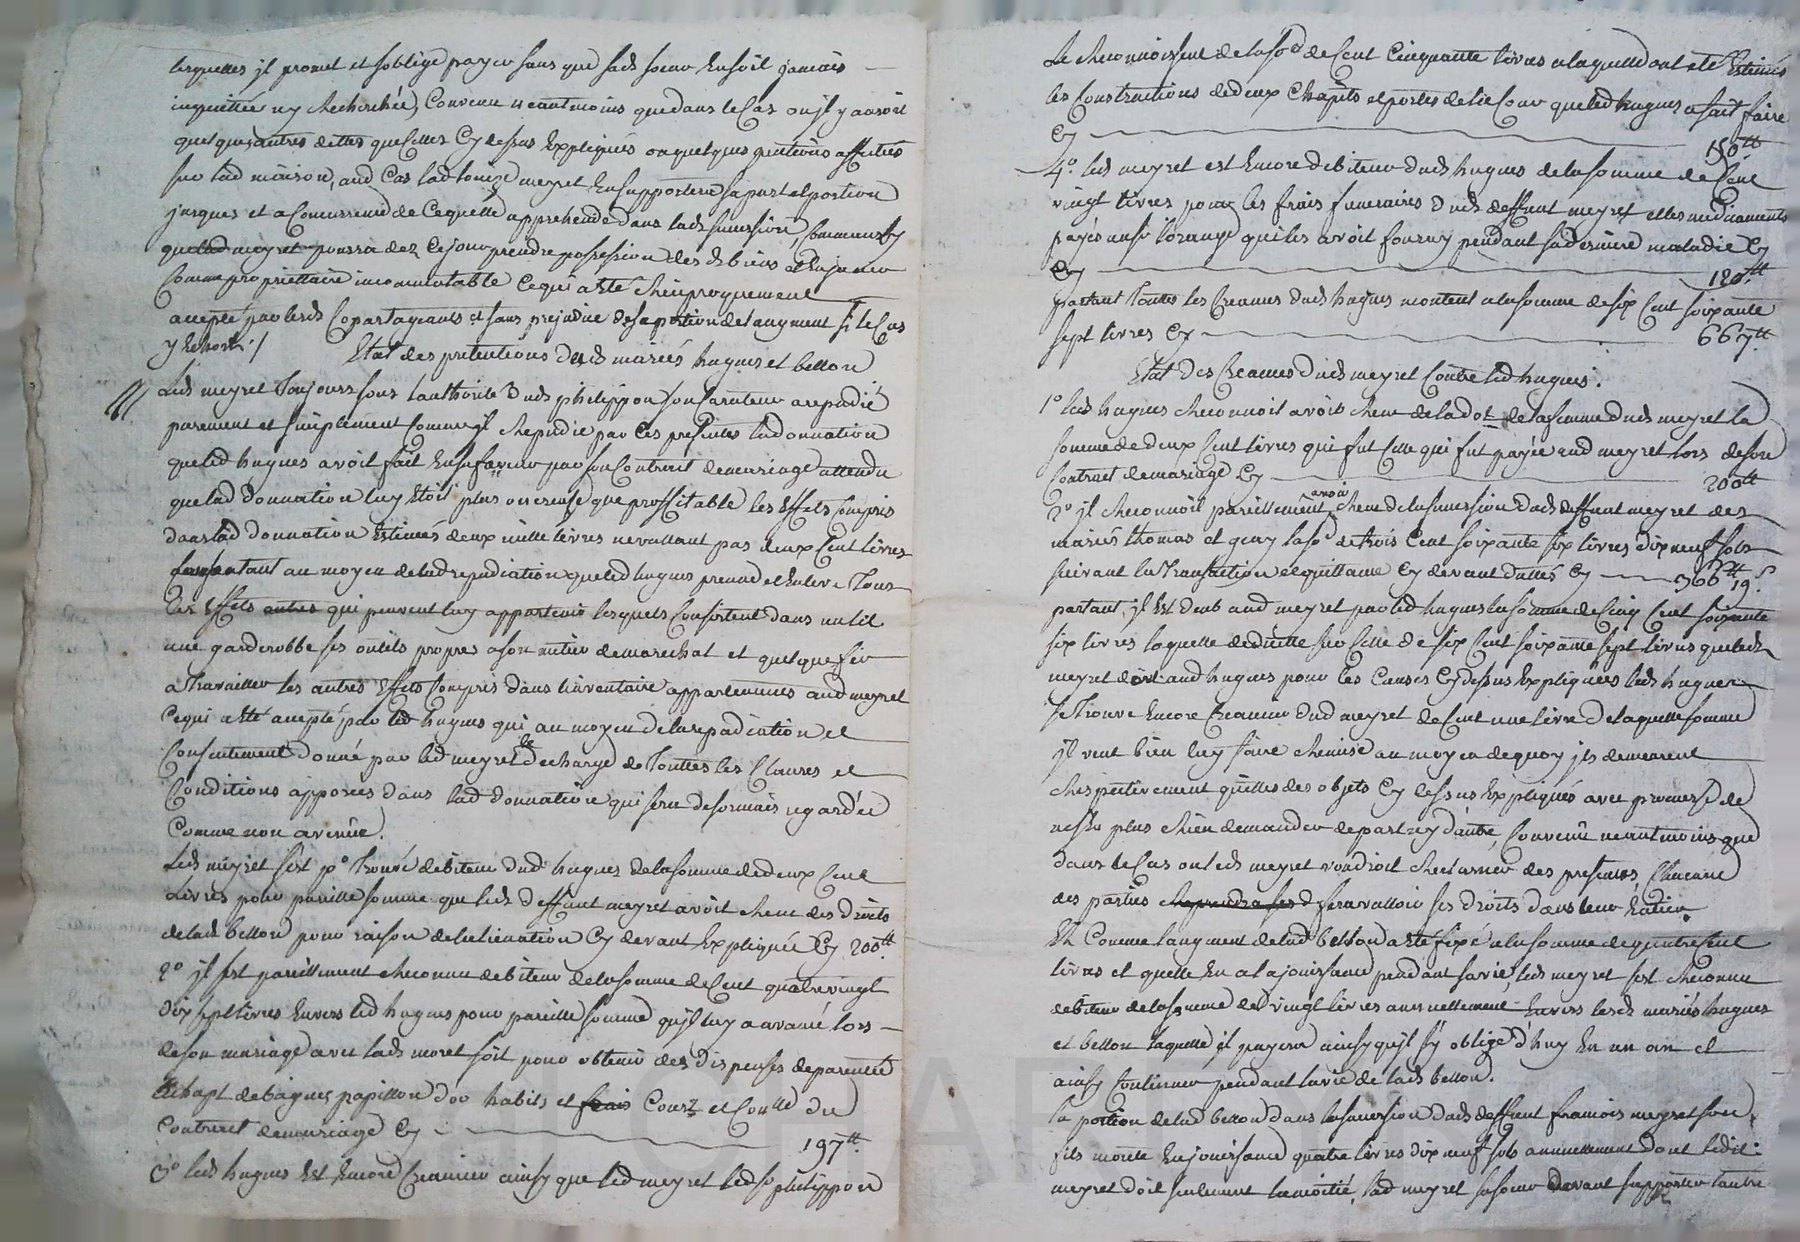 lesquelles jl promet et soblige payer sans que sad soeur En soit jamais
inquiettée ny Recherchée, Convenu neantmoins que dans le Cas ou jl y auroit
quelques autres dettes que Celles Cy dessus Expliquées ou quelques pentions affectées
sur lad maison, aud Cas lad meyret En supportera sa part et portion
jusques et a Concurrence de Ce quelle apprehende dans lad succession,
que led meyret pourra dez Ce jour prendre possession des d biens et En jouir
Comme propriettaire incommutable Ce qui a Eté Reciproquement
accepté par lesd Copartageants et sans prejudice de sa portion de laugment si le Cas
y Echoit /
Etat des pretentions dud mariés hugues et bellon
Led meyret Toujours sous lauthorité dud philippon son Curateur a repudié
purement et simplement Comme jl Repudie par Ces presentes lad donnation
que led hugues avoit fait En sa faveur par son Contract de mariage attendu
que lad donnation luy Etoit plus onereuse que proffitable les Effets Compris
dans lad donnation Estimés deux mille livres ne vallant pas deux Cent livres
partant au moyen de lad repudiation que led hugues prenne et Enleve Tous
les Effets autres qui peuvent luy appartenir lesquels Consistent dans un lit
une garderobbe ses outils propres a son metier de marechal et quelque fer
a Travailler les autres Effets Compris dans linventaire appartenants aud meyret
Ce qui a Eté accepté par led hugues qui au moyen de la repudiation et
Consentement donné par led meyret le decharge de Touttes les Clauses et
Conditions apposées dans lad donnation qui sera desormais regardée
Comme non avenüe.
Led meyret sest p.° Trouvé debiteur dud hugues de la somme de deux Cent
Livres pour pareille somme que led deffunt meyret avoit Receu des droits
de lad bellon pour raison de lalienation Cy devant Expliquée Cy 200tt.
2° jl sest pareillement Reconnu debiteur de la somme de Cent quatre vingt
dix sept livres Envers led hugues pour pareille somme qujl luy a avancé lors
de son mariage avec lad moret soit pour obtenir des dispenses de parenté
achapt de bagues papillon dor habits et frais Cour et Controlle du
Contract de mariage Cy 197tt.
3° led hugues Est Encore Creancier ainsy que led meyret led sr philippon
Le Reconnoissent de la so.e de Cent Cinquante livres a laquelle ont eté Estimés
les Constructions de deux Chapits et portes de lie Cour que led hugues a fait faire
Cy 150tt
4.° led meyret est Encore debiteur dud hugues de la somme de Cent
vingt livres pour les frais funeraires dud deffunt meyret et les medicaments
payés au sr qui les avoit fourny pendant sa derniere maladie Cy
Cy 120tt.
partant Touttes les Creances dud hugues montent a la somme de six Cent soixante
sept livres Cy 667tt.
Etat des Creances dud meyret Contre led hugues.
1° led hugues Reconnoit avoir Receu de la dot de la femme dud meyret la
somme de deux Cent livres qui fut Celle qui fut payée aud meyret lors de son
Contract de mariage Cy 200tt
2° jl Reconnoit pareillement avoir Receu de la succession dud deffunt meyret des
mariés thomas et guay la so.e de trois Cent soixante six livres dix neuf sols
suivant la Transaction et quittance Cy devant dattés Cy 366tt 19s.
partant jl Est deub aud meyret par led hugues la somme de Cinq Cent soixante
six livres laquelle dedüitte sur Celle de six Cent soixante sept livres que led
meyret doit aud hugues pour les Causes Cy dessus Expliquées led hugues
se Trouve Encore Creancier dud meyret de Cent une livre de laquelle somme
jl veut bien luy faire Remise au moyen de quoy jls demeurent
Respectivement quittes des objets Cy dessus Expliqués avec promesse de
ne se plus Rien demander de part ny dautre, Convenu neantmoins que
dans le Cas ou led meyret voudroit Reclamer des presentes Chacune
des parties Reprendra ses d fera valloir ses droits dans leur Entier.
Et Comme laugment de lad bellon a eté fixé a la somme de quatre Cent
livres et quelle En a la jouissance pendant sa vie, led meyret sest Reconnu
debiteur de la somme de vingt livres annuellement Envers lesd mariés hugues
et bellon laquelle jl payera ainsy qujl sy oblige d'huy En un an et
ainsy Continuer pendant la vie de lad bellon.
la portion de lad bellon dans la succession dud deffunt francois meyret son
fils monte En jouissance quatre livres dix neuf sols annuellement dont ledit
meyret doit seulement la moitié, lad meyret sa soeur devant supporter lautre